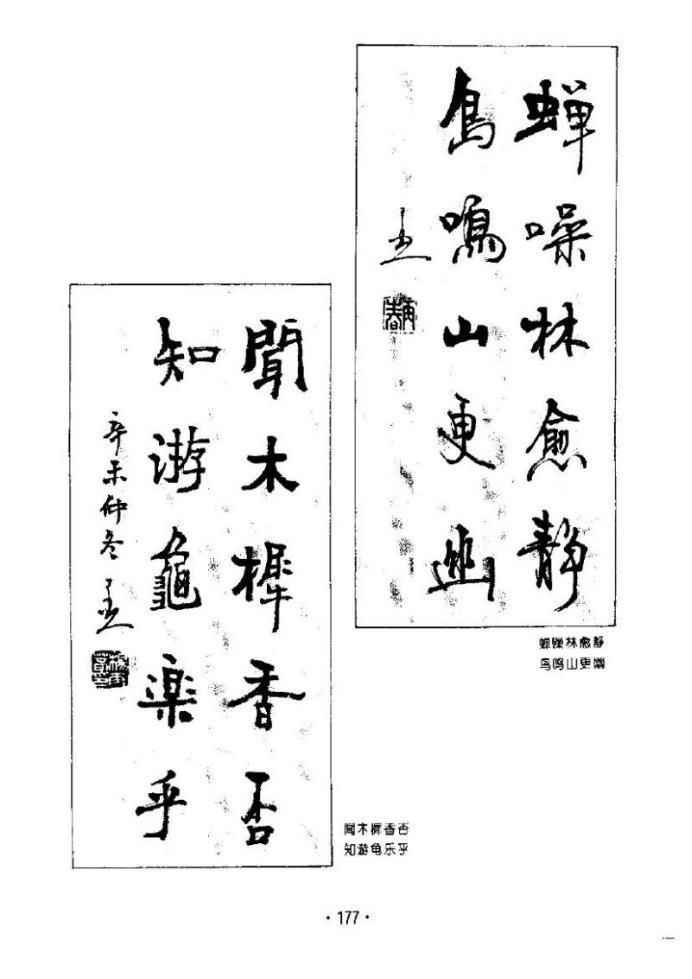 蝉噪林愈静
鳥鳴山更幽
蝉噪林愈静
鸟鸣山更幽
聞木樨香否
知游龜楽乎
辛未仲冬
闻木樨香否
知游龟乐乎
·177·